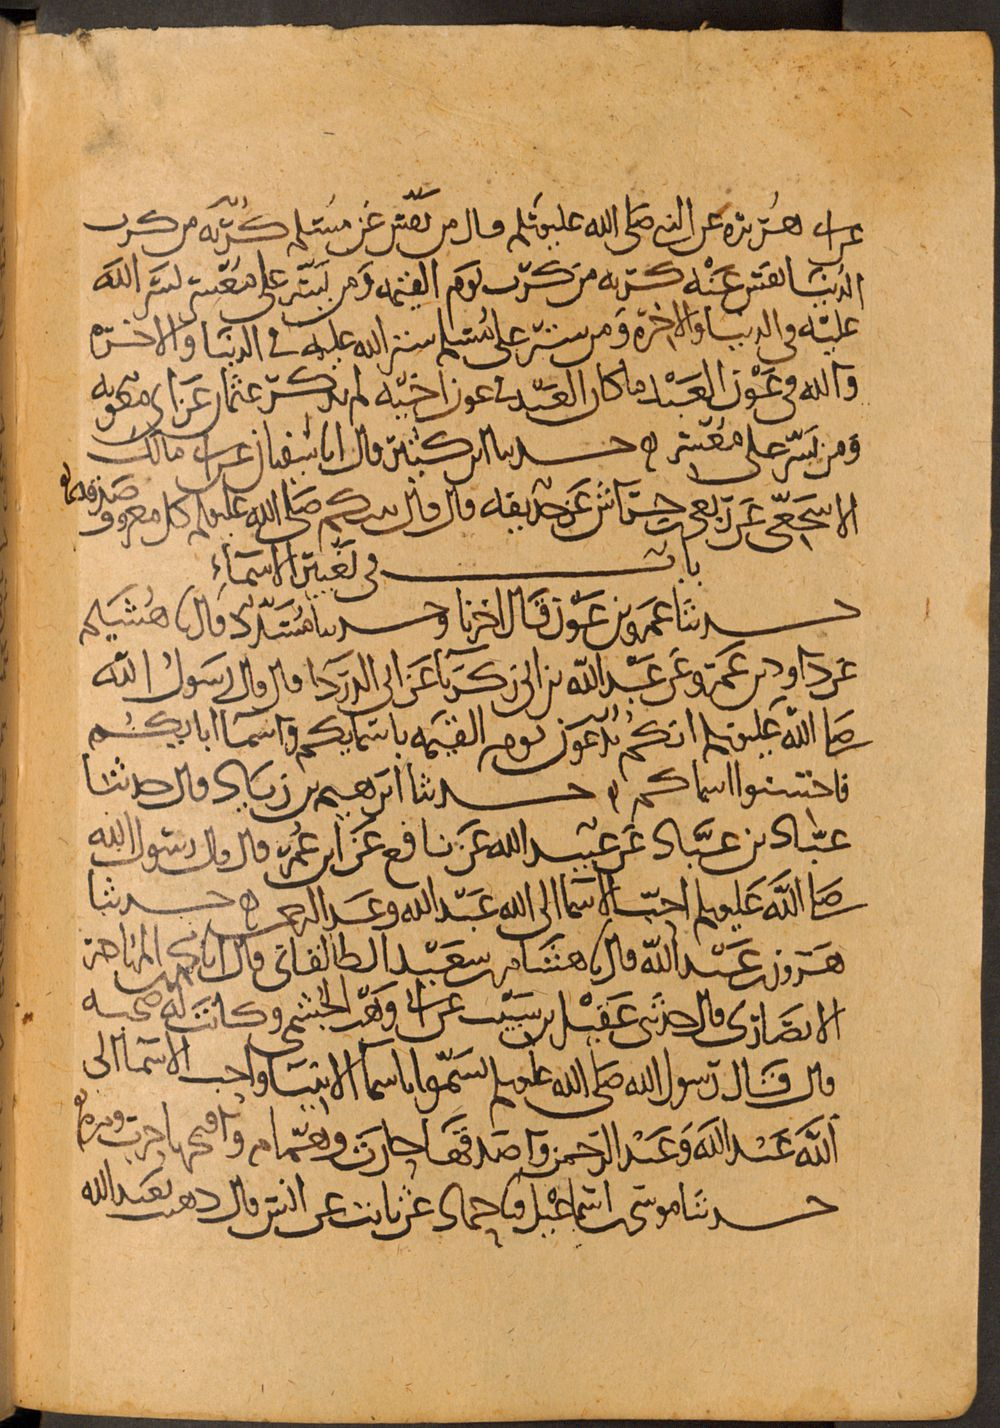 عن ابي هريره عن النبي صلى الله عليه وسلم قال من نفس عن مسلم كربه من كرب
الدنيا نفس عنه كربه من كرب يوم القيمه ومن يسر على معسر يسر الله
عليه في الدنيا والاخره ومن ستر على مسلم ستر الله عليه في الدنيا والاخره
والله في عون العبد ما كان العبد في عون اخيه لم يذكر عثمان عن ابي معويه
ومن يسر على معسر ه حدثنا ابن كثير قال انا سفيان عن ابي مالك
الاشجعي عن ربعي بن حراش عن حذيفه قال قال نبيكم صلى الله عليه وسلم كل معروف صدقه
باب في تغيير الاسماء
حدثنا عمرو بن عون قال اخبرنا وحدثنا مسدد قال نا هشيم
عن داود بن عمرو عن عبد الله بن ابي زكريا عن ابي الدرداء قال قال رسول الله
صلى الله عليه وسلم انكم تدعون يوم القيمه باسمايكم واسما ابايكم
فاحسنوا اسماكم ه حدثنا ابرهيم بن زياد قال حدثنا
عباد بن عباد عن عبيد الله عن نافع عن ابن عمر قال قال رسول الله
صلى الله عليه وسلم احب الاسما الى الله عبد الله وعبد الرحمن ه حدثنا
هرون بن عبد الله قال نا هشام بن سعيد الطالقاني قال انا محمد بن المهاجر
الانصاري قال حدثني عقيل بن شبيب عن ابي وهب الجشمي وكانت له صحبه
قال قال رسول الله صلى الله عليه وسلم تسموا باسما الانبيا واحب الاسما الى
الله عبد الله وعبد الرحمن واصدقها حارث وهمام واقبحها حرب ومره
حدثنا موسى بن اسماعيل نا حماد عن ثابت عن انس قال ذهبت بعبد الله